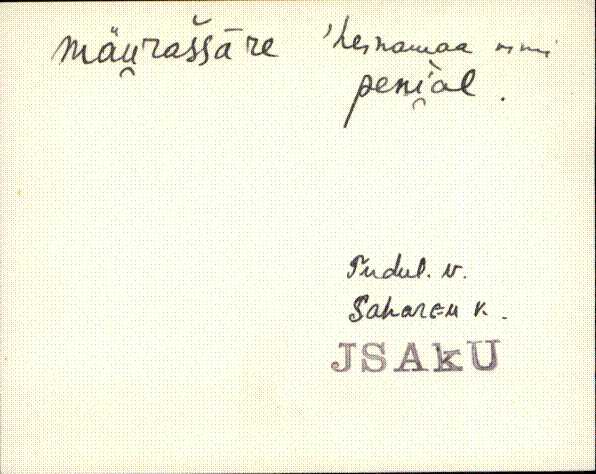 mäu̯raššāre 'heinamaa nimi
peni̯al.
Tudul. v.
Sahareu k.
JSAkU